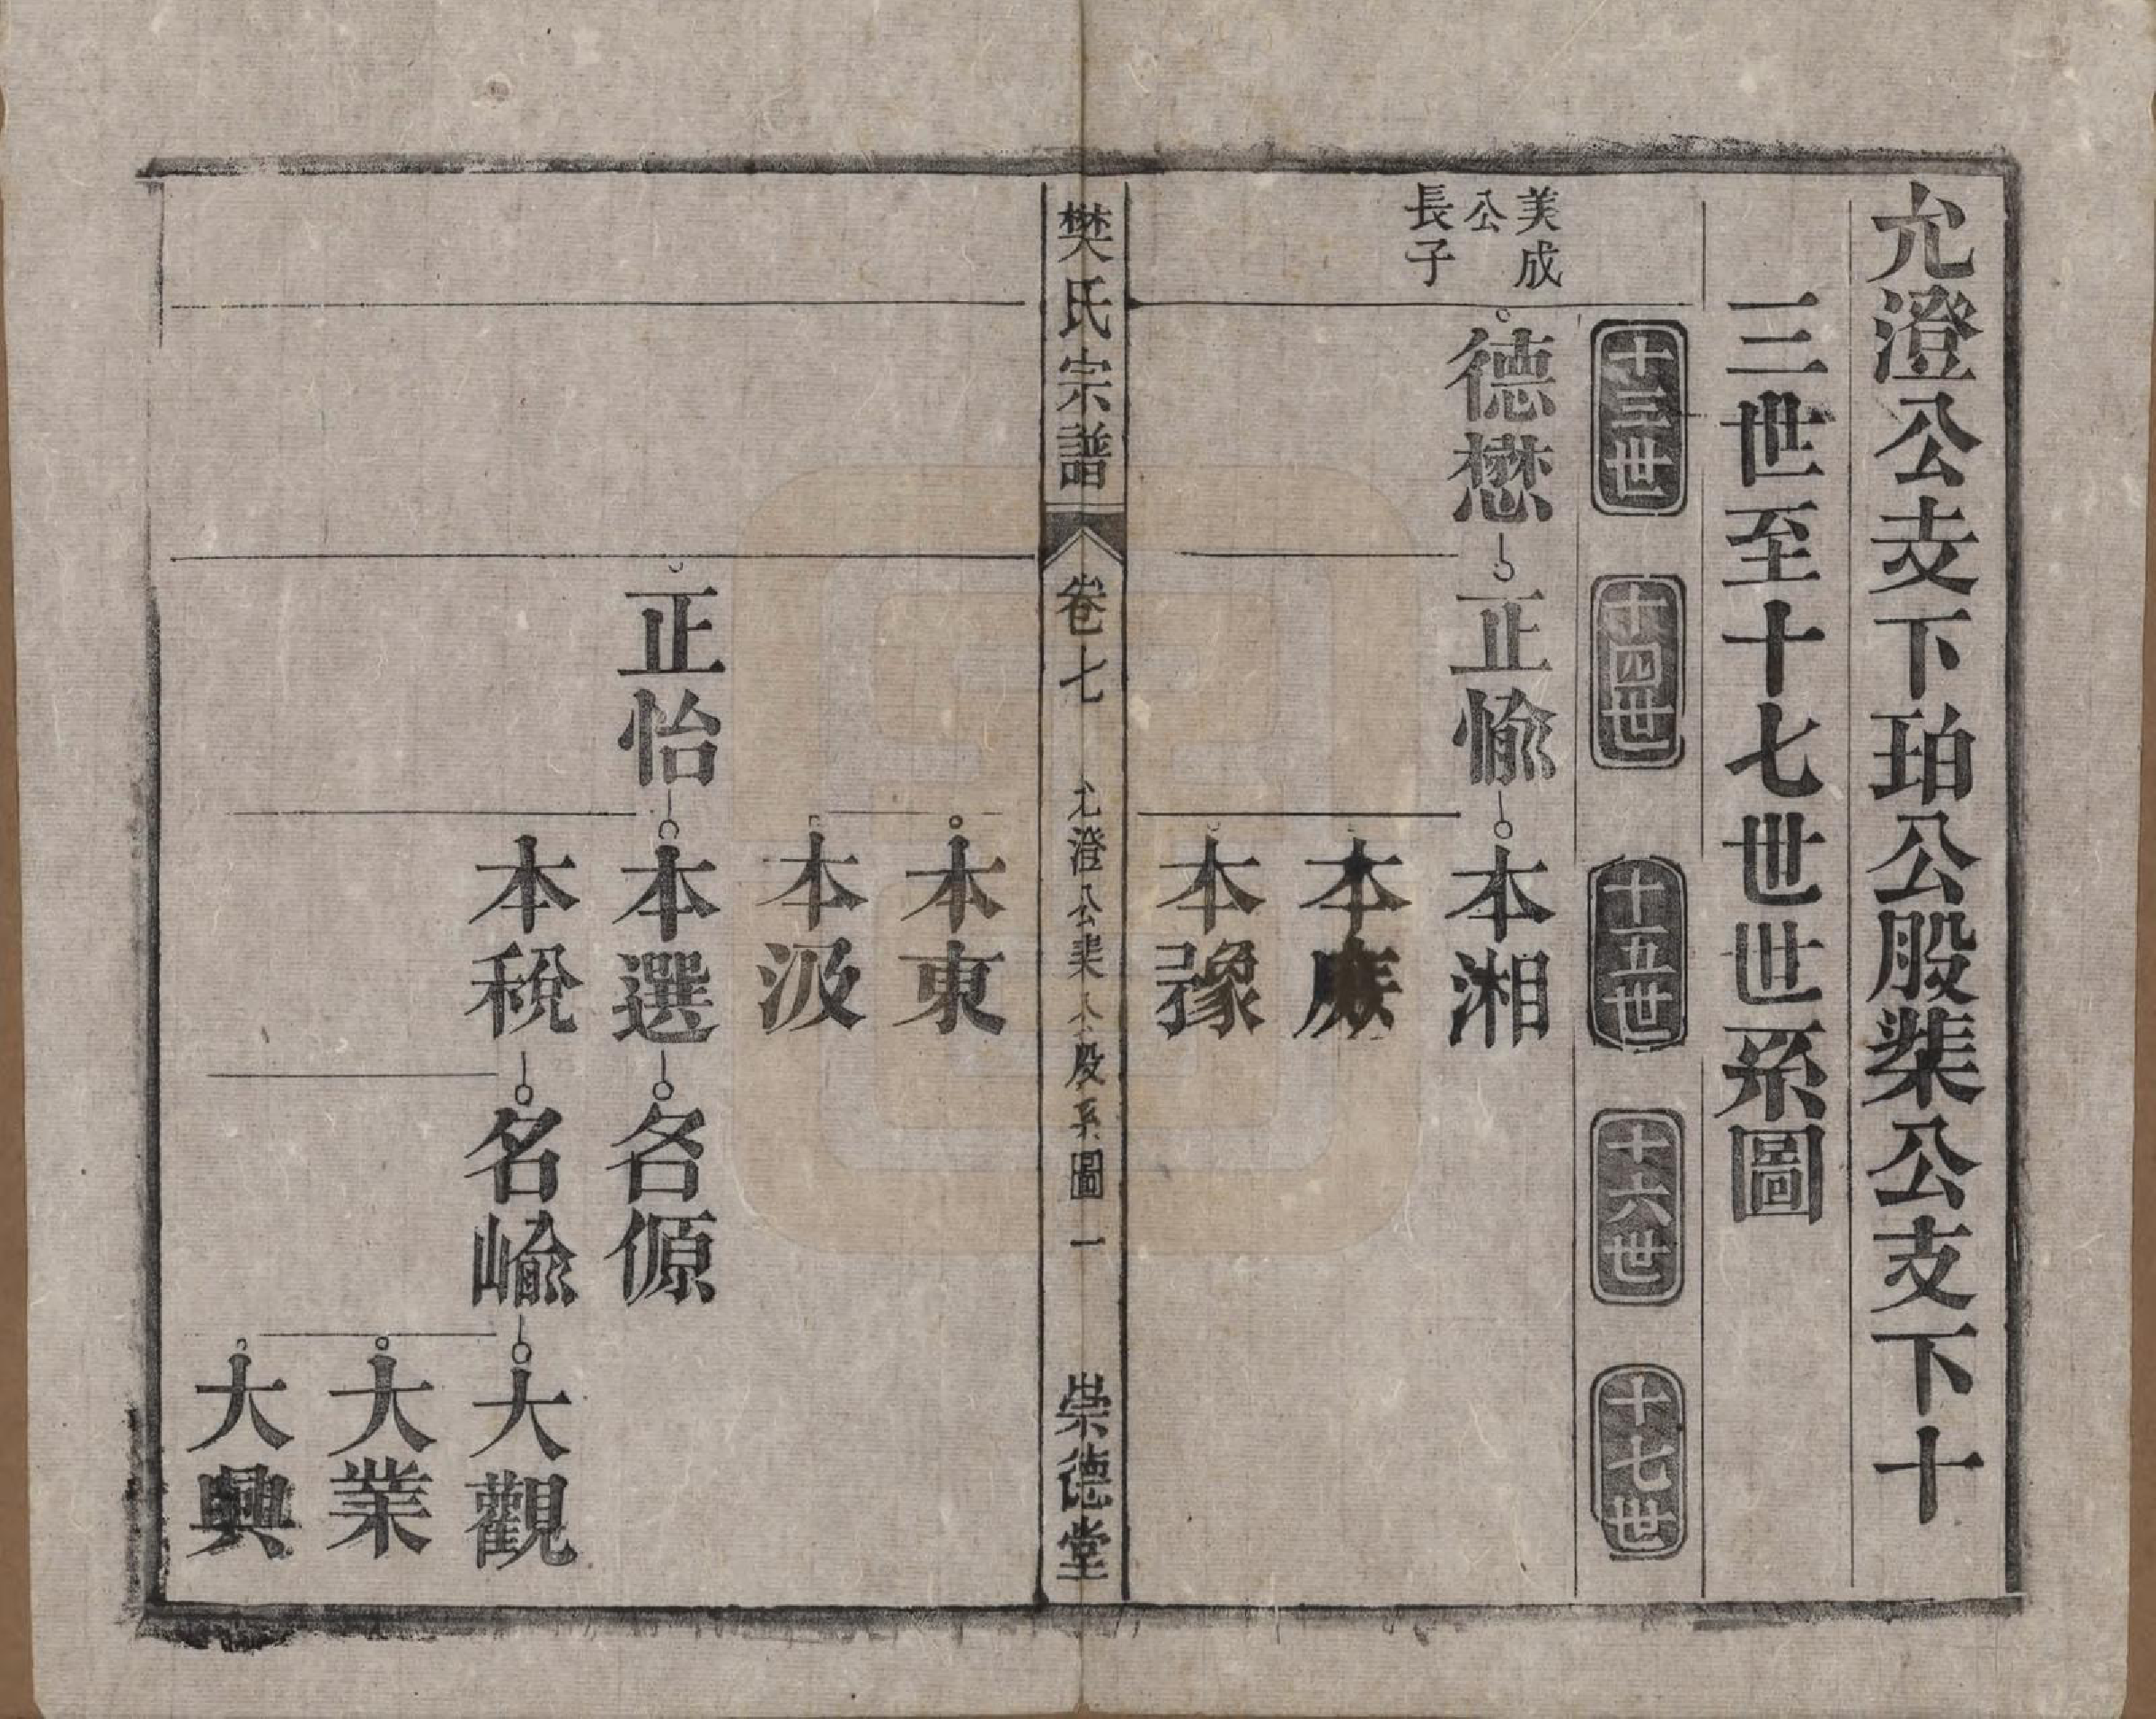 允澄公支下珀公股棐公支下十
三世至十七世世系圖
十三世
十四世
十五世
十六世
十七世
美成
公
長子
德懋
正愉
本湘
本豫
樊氏宗譜
卷七
允澄公棐公股系圖一
崇德堂
本東
本汲
正怡
本選
名傆
本稅
名崳
大觀
大業
大興